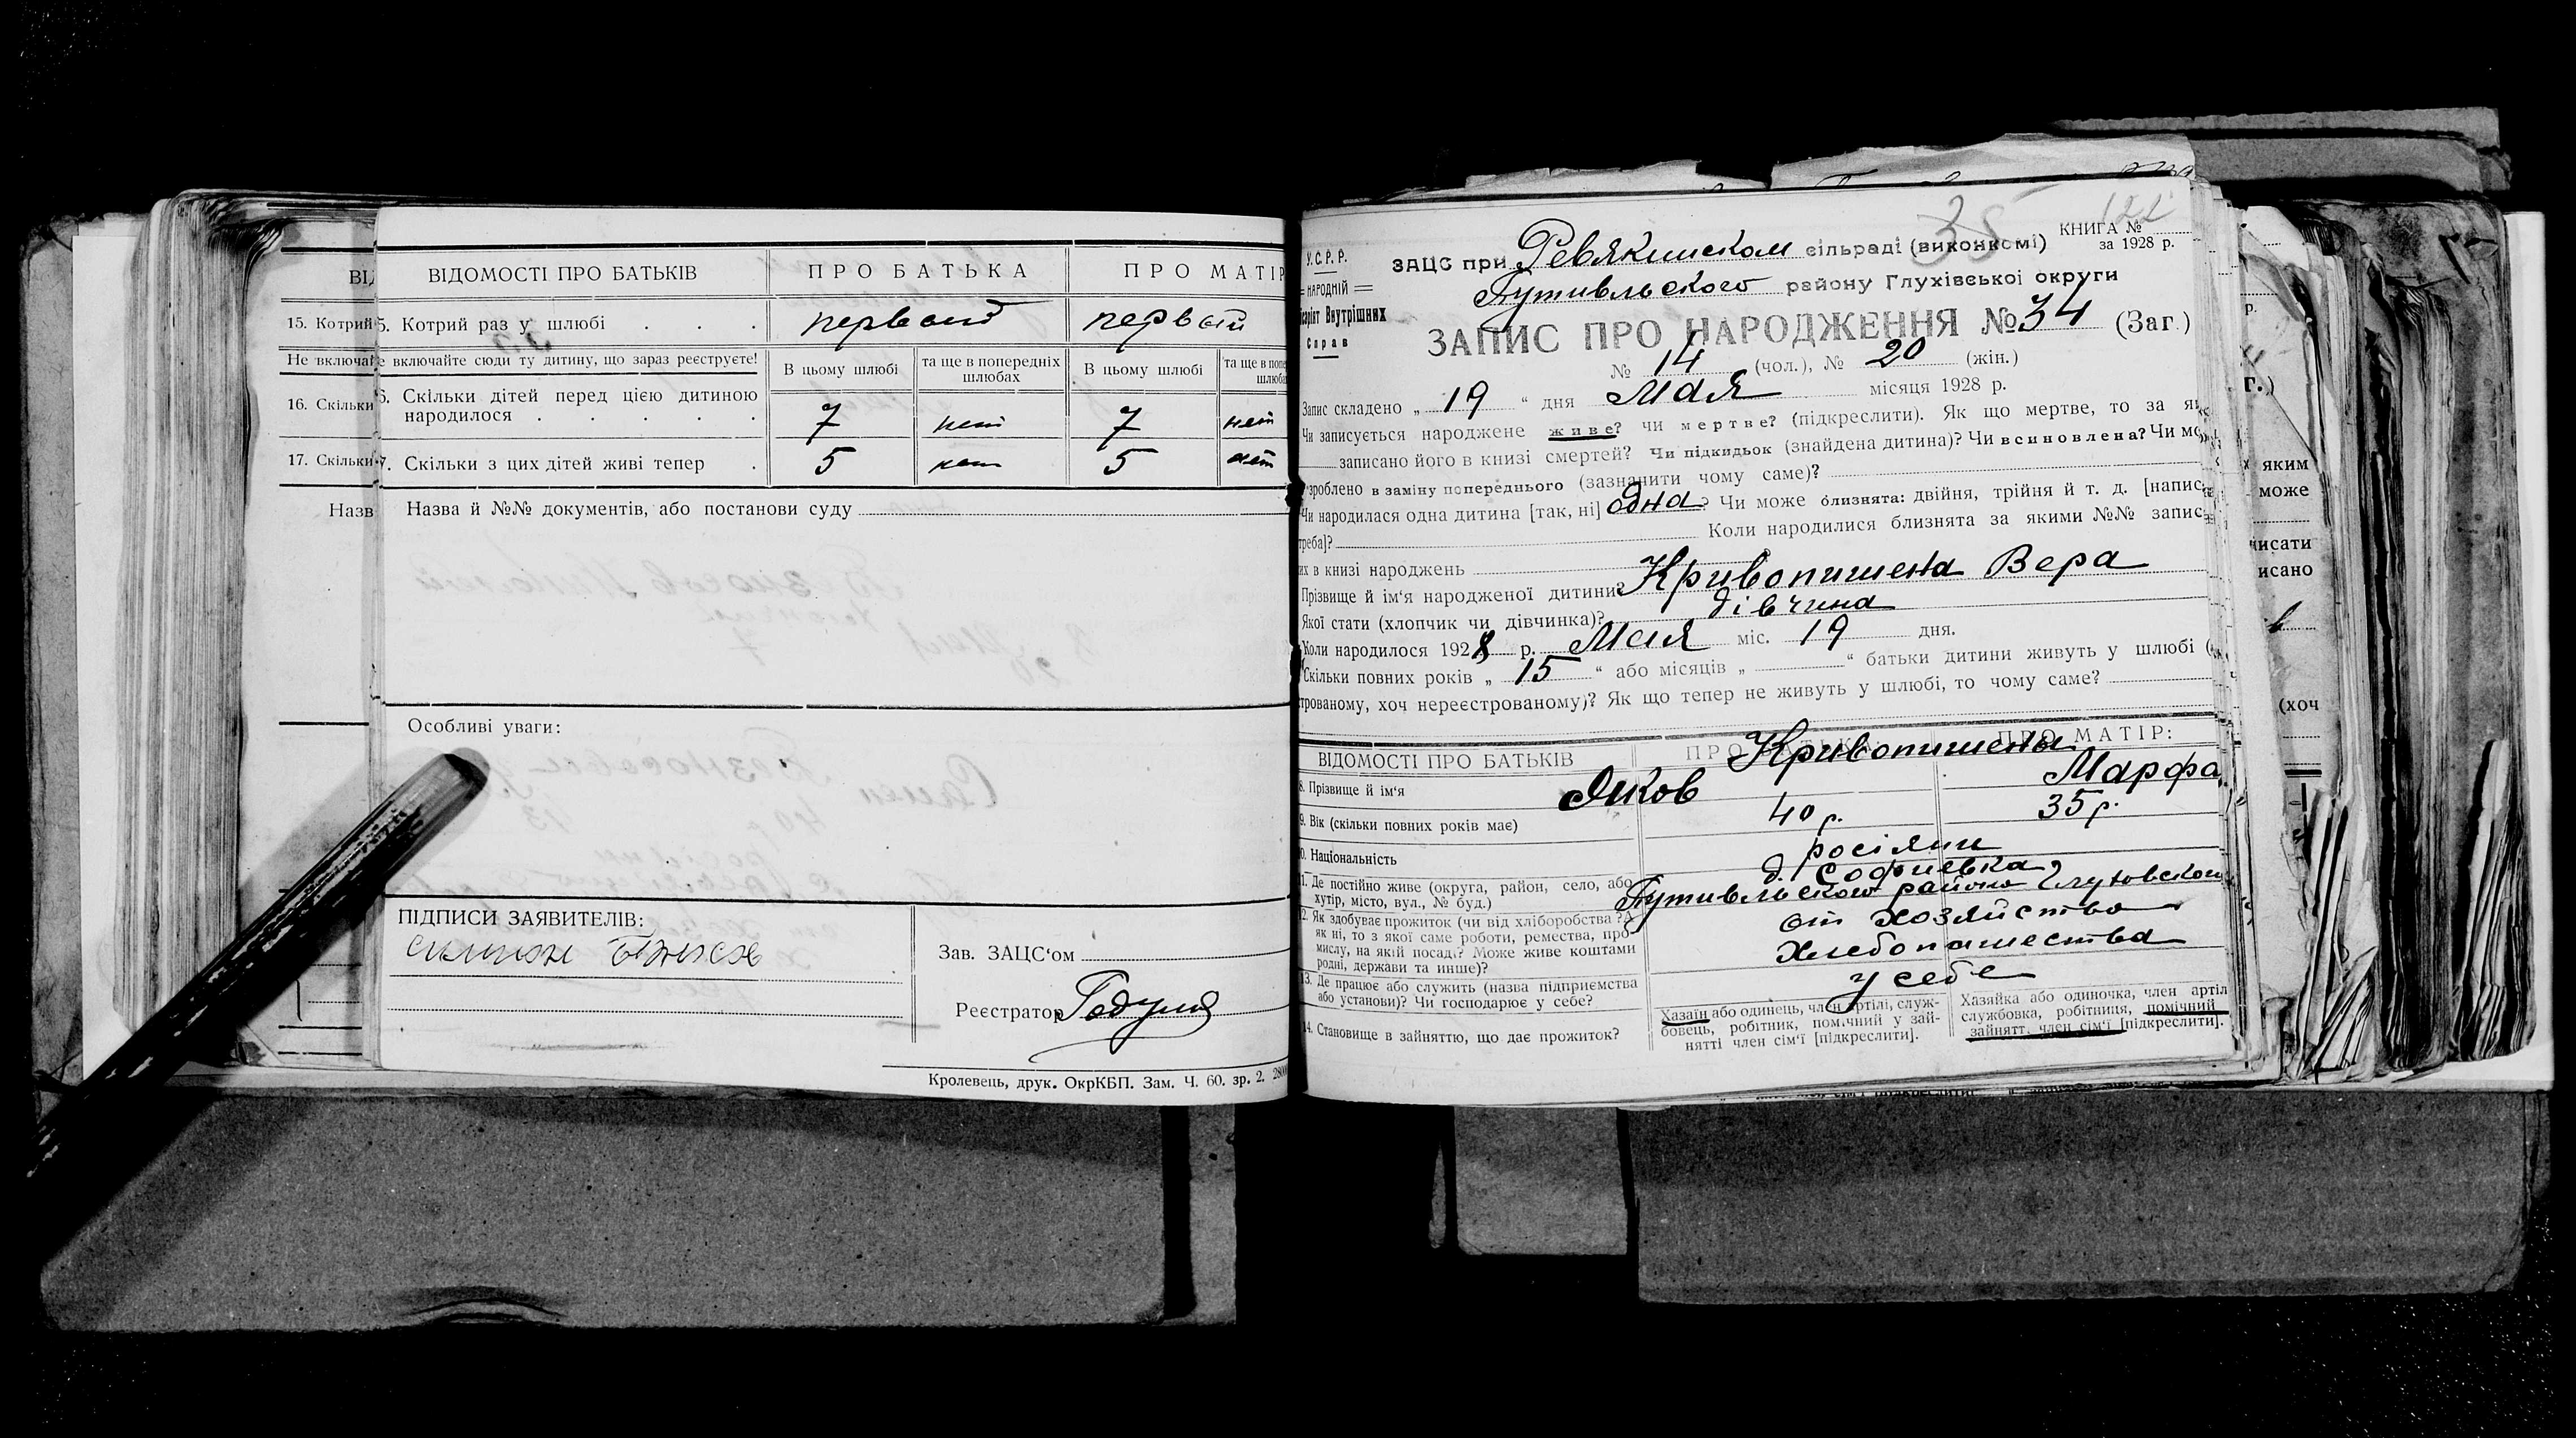 ВІДОМОСТІ ПРО БАТЬКІВ
ПРО БАТЬКА
ПРО МАТІР
15. Котрий
5. Котрий раз у шлюбі . . .
первый
первый
Не включай
е включайте сюди ту дитину, що зараз реєструєте!
В цьому шлюбі
та ще в попередніх шлюбах
В цьому шлюбі
та ще в попе
шлюбах
16. Скільки
6. Скільки дітей перед цією дитиною
народилося . . . . .
7
нет
7
нет
17. Скільки
7. Скільки з цих дітей живі тепер .
5
нет
5
нет
Назв
Назва й №№ документів, або постанови суду
Особливі уваги:
ПІДПИСИ ЗАЯВИТЕЛІВ:
Зав. ЗАЦС‘ом
Реєстратор
Кролевець, друк. ОкрКБП. Зам. Ч. 60. зр. 2.
35
122
У.С.Р.Р.
НАРОДНІЙ
Внутрішних
Справ
КНИГА №
за 1928 р.
ЗАЦС при Ревякинском сільраді (виконкомі)
Путивльского району Глухівської округи
ЗАПИС ПРО НАРОДЖЕННЯ № 34 (Заг.)
№ 14 (чол.), № 20 (жін.)
Запис складено „ 19 “ дня Мая місяця 1928 р.
Чи записується народжене живе? чи мертве? (підкреслити). Як що мертве, то за як
записано його в книзі смертей? Чи підкидьок (знайдена дитина)? Чи всиновлена? Чи мо
зроблено в заміну попереднього (зазначити чому саме)?
Чи народилася одна дитина [так, ні] одна? Чи може близнята: двійня, трійня й т. д. [напис
треба]? Коли народилися близнята за якими №№ запис
их в книзі народжень
Прізвище й ім'я народженої дитини? Кривопишена Вера
Якої стати (хлопчик чи дівчинка)? дівчина
Коли народилося 1928 р. Мая міс. 19 дня.
Скільки повних років „ 15 “ або місяців „ “ батьки дитини живуть у шлюбі (
трованому, хоч нереєстрованому)? Як що тепер не живуть у шлюбі, то чому саме?
ВІДОМОСТІ ПРО БАТЬКІВ
ПРО БАТЬКА:
ПРО МАТІР:
Кривопишены
8. Прізвище й ім'я
Яков
Марфа
9. Вік (скільки повних років має)
40 р.
35 р.
0. Національність
росіяни
1. Де постійно живе (округа, район, село, або
хутір, місто, вул., № буд.)
д. Софиевка
Путивльского района Глуховского
2. Як здобуває прожиток (чи від хліборобства? А
як ні, то з якої саме роботи, ремества, про
мислу, на якій посаді? Може живе коштами
родні, держави та инше)?
от хозяйства
Хлебопашества
13. Де працює або служить (назва підприємства
або установи)? Чи господарює у себе?
у себе
14. Становище в зайняттю, що дає прожиток?
Хазаїн або одинець, член артілі, служ-
бовець, робітник, помічний у зай-
нятті член сім'ї [підкреслити].
Хазяйка або одиночка, член артіл
службовка, робітниця, помічний
зайнятті член сім'ї [підкреслити].
р.
г.)
яким
може
писати
исано
(хоч